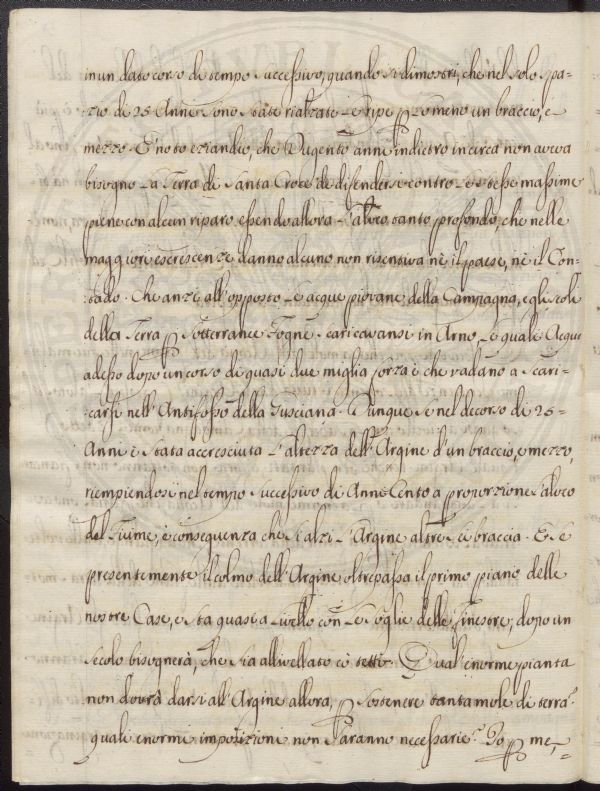 in un dato corso di tempo successivo, quando si dimostri, che nel solo spa=
zio di 25 Anni sono state rialzate le ripe p lo meno un braccio, e
mezzo. E' noto eziandio, che Dugento anni indietro in circa non aveva
bisogno la Terra di Santa Croce di difendersi contro le stesse massime
piene con alcun riparo, essendo allora l'alveo tanto profondo, che nelle
maggiori escrescenze danno alcuno non risentiva nè il paese, nè il Con=
tado. Che anzi all'opposto le acque piovane della Campagna, e gli scoli
della Terra p Sotterranee Fogne scaricavansi in Arno, le quali Acque
adesso dopo un corso di quasi due miglia forza è che vadano a scari=
carsi nell'Antifosso della Gusciana. Dunque se nel decorso di 25=
Anni è stata accresciuta l'altezza dell'Argine d'un braccio, e mezzo,
riempiendosi nel tempo successivo di Anni Cento a proporzione l'alveo
del Fiume, è conseguenza che s'alzi l'Argine altre sei braccia. E se
presentemente il colmo dell'Argine oltrepassa il primo piano delle
nostre Case, e sta quasi a livello con le soglie delle Finestre, dopo un
secolo bisognerà, che sia allivellato co' tetti. Qual'enorme pianta
non dovrà darsi all'Argine allora, p sostenere tanta mole di terra?
quali enormi imposizioni non saranno necessarie? Io p me, =